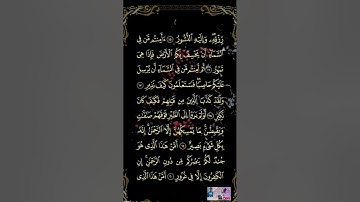 رِّزْقِهِۦ ۖ وَإِلَيْهِ ٱلنُّشُورُ ١٥ ءَأَمِنتُم مَّن فِى
ٱلسَّمَآءِ أَن يَخْسِفَ بِكُمُ ٱلْأَرْضَ فَإِذَا هِىَ
تَمُورُ ١٦ أَمْ أَمِنتُم مَّن فِى ٱلسَّمَآءِ أَن يُرْسِلَ
عَلَيْكُمْ حَاصِبًا ۖ فَسَتَعْلَمُونَ كَيْفَ نَذِيرِ ١٧
وَلَقَدْ كَذَّبَ ٱلَّذِينَ مِن قَبْلِهِمْ فَكَيْفَ كَانَ
نَكِيرِ ١٨ أَوَلَمْ يَرَوْا۟ إِلَى ٱلطَّيْرِ فَوْقَهُمْ صَٰٓفَّٰتٍ
وَيَقْبِضْنَ ۚ مَا يُمْسِكُهُنَّ إِلَّا ٱلرَّحْمَٰنُ ۚ إِنَّهُۥ
بِكُلِّ شَىْءٍۭ بَصِيرٌ ١٩ أَمَّنْ هَٰذَا ٱلَّذِى هُوَ
جُندٌ لَّكُمْ يَنصُرُكُم مِّن دُونِ ٱلرَّحْمَٰنِ ۚ إِنِ
ٱلْكَٰفِرُونَ إِلَّا فِى غُرُورٍ ٢٠ أَمَّنْ هَٰذَا ٱلَّذِى